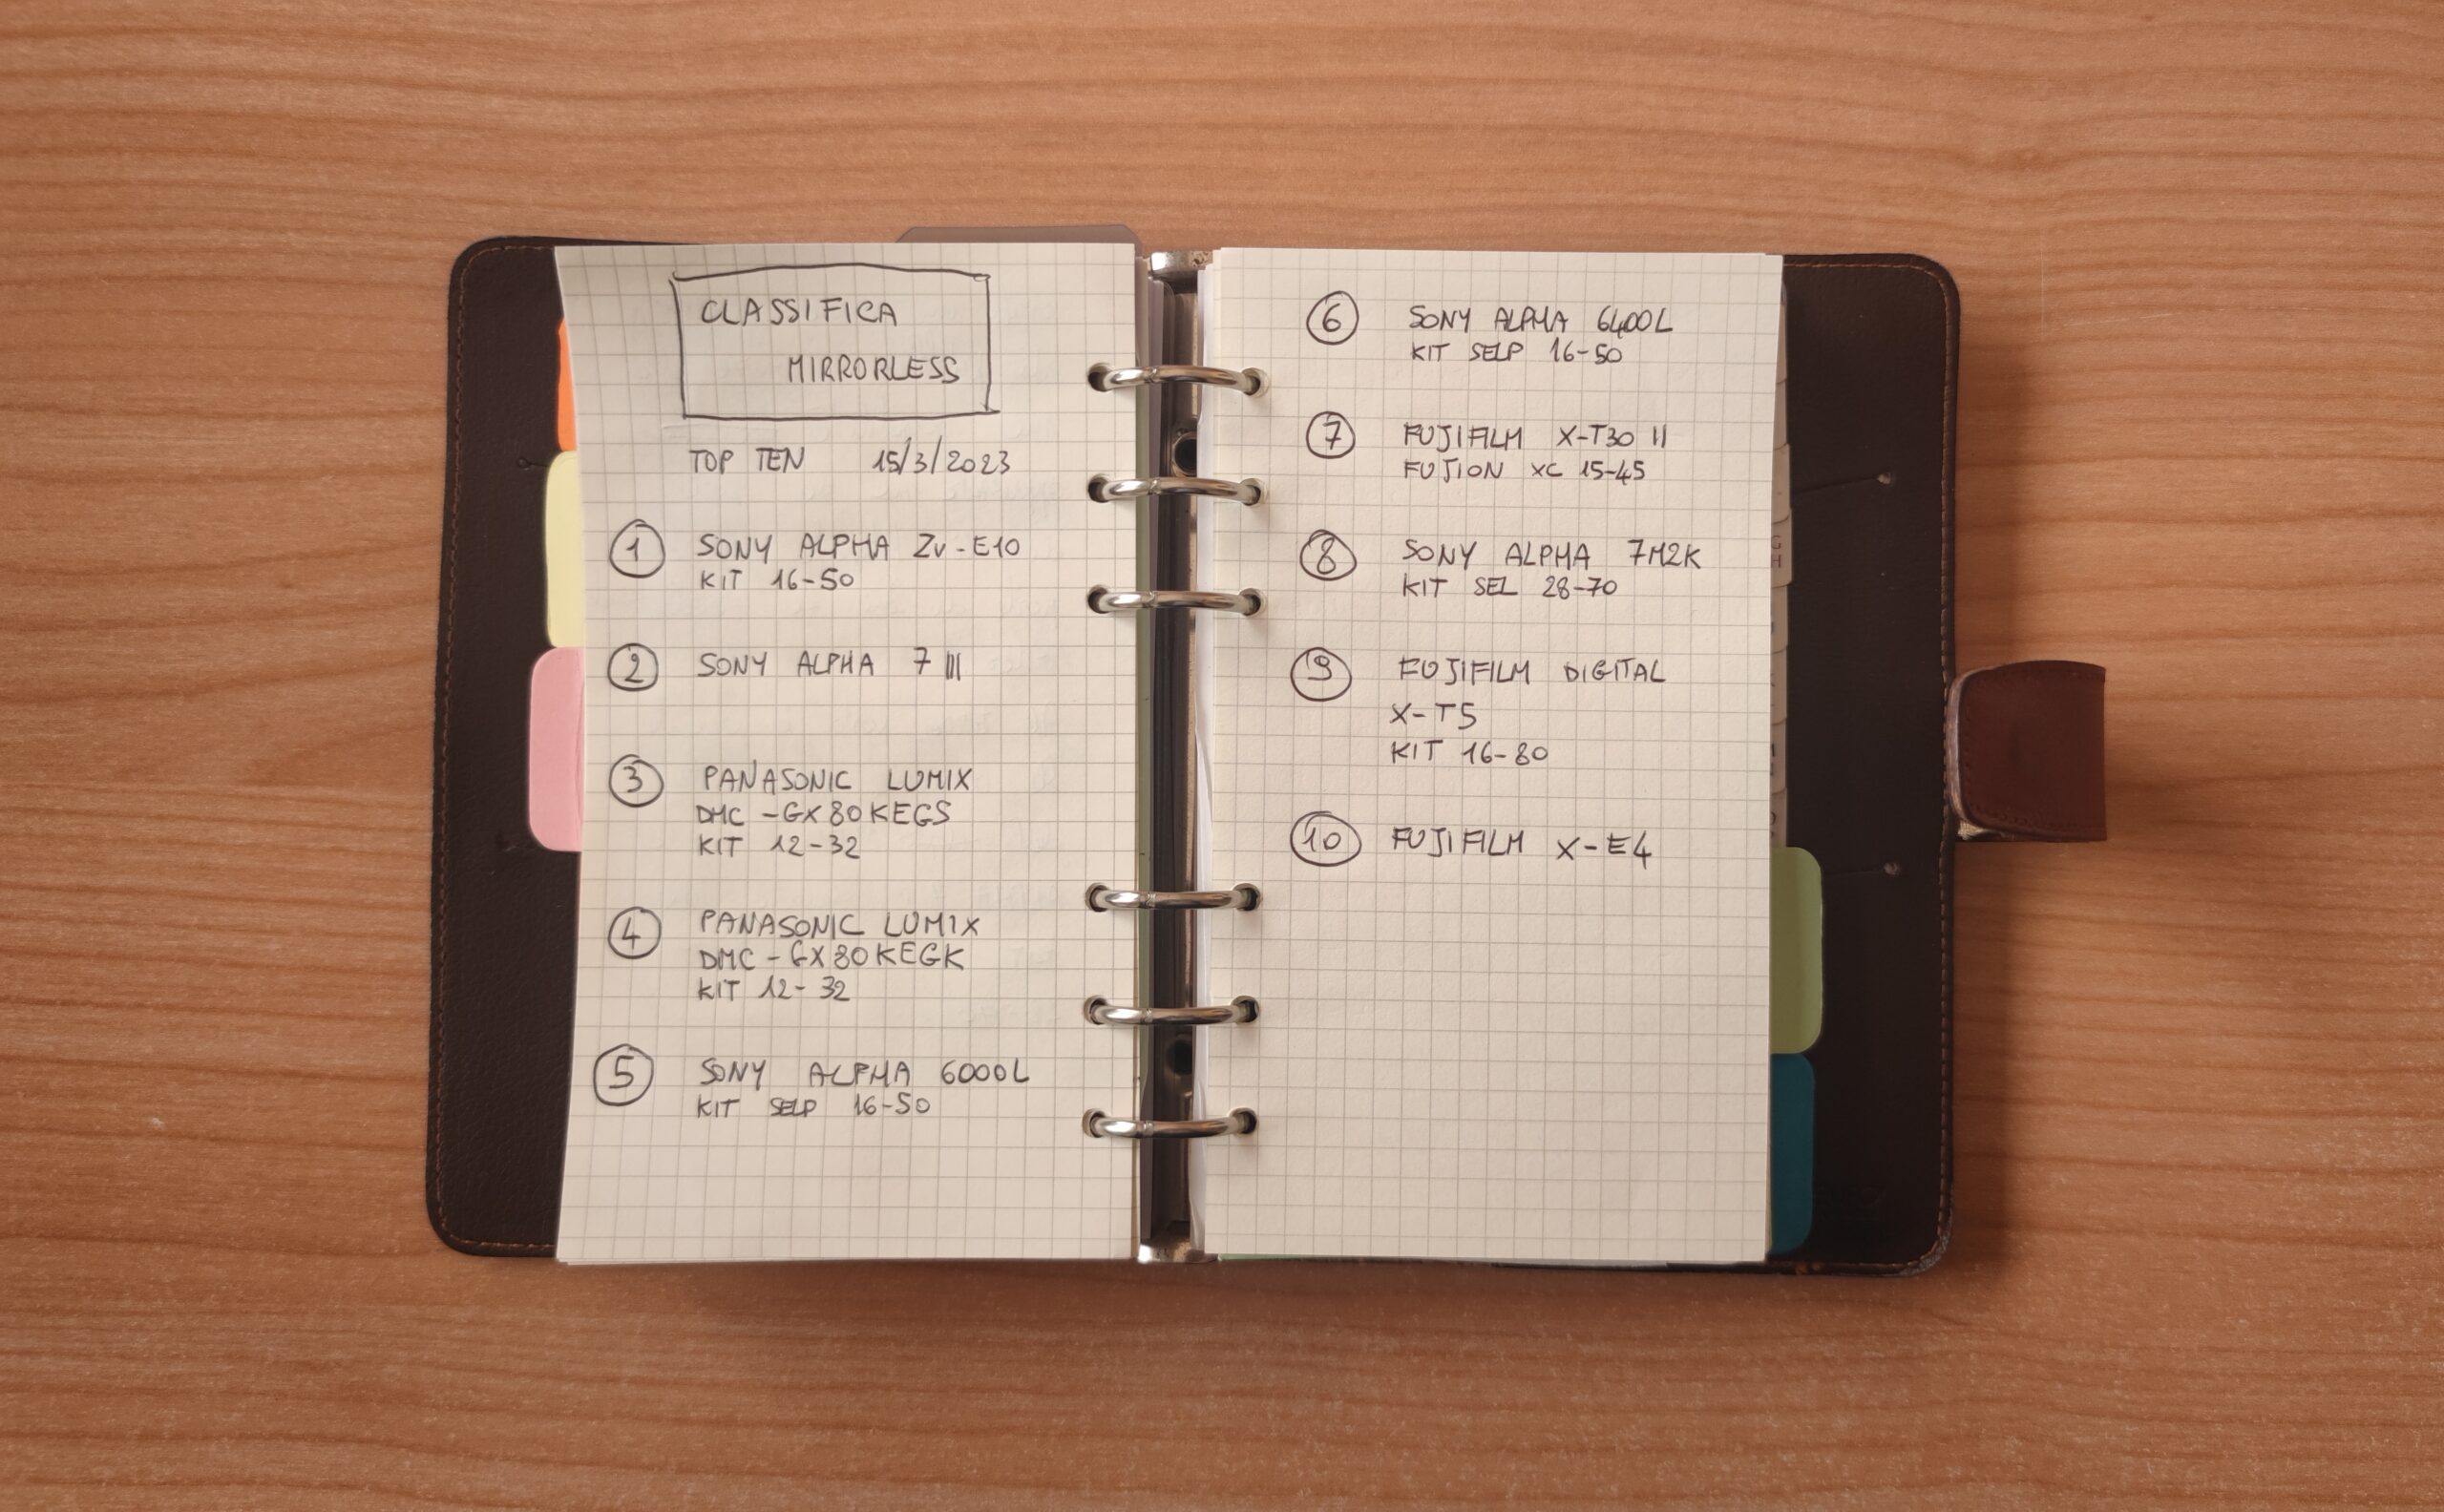 CLASSIFICA
MIRRORLESS
TOP TEN 15/3/2023
1 SONY ALPHA ZV-E10
KIT 16-50
2 SONY ALPHA 7 III
3 PANASONIC LUMIX
DMC - GX80KEGS
KIT 12-32
4 PANASONIC LUMIX
DMC - GX80KEGK
KIT 12-32
5 SONY ALPHA 6000L
KIT SELP 16-50
6 SONY ALPHA 6400L
KIT SELP 16-50
7 FUJIFILM X-T30 II
FUJION XC 15-45
8 SONY ALPHA 7M2K
KIT SEL 28-70
9 FUJIFILM DIGITAL
X-T5
KIT 16-80
10 FUJIFILM X-E4
G
H